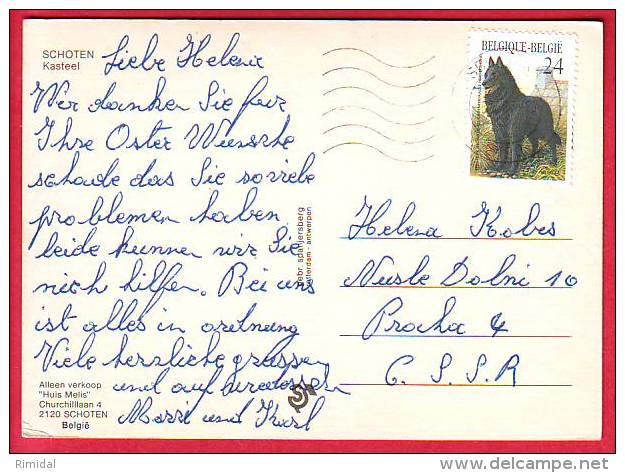 SCHOTEN
Kasteel
Liebe Helena
Wir danken Sie fur
Ihre Oster Wunsche
schade das Sie so viele
problemen haben
leide kunnen wir Sie
nich hilfen. Bei uns
ist alles in ordnung
Viele herzliche grussen
und auf wiedersehen
Marie und Karl
Alleen verkoop
"Huis Melis"
Churchilllaan 4
2120 SCHOTEN
België
gebr. spanjersberg
rotterdam - antwerpen
BELGIQUE-BELGIË
24
Helena Kobes
Nusle Dolni 10
Pracha 4
C. S. S. R
Rimidal
©delcampe.net